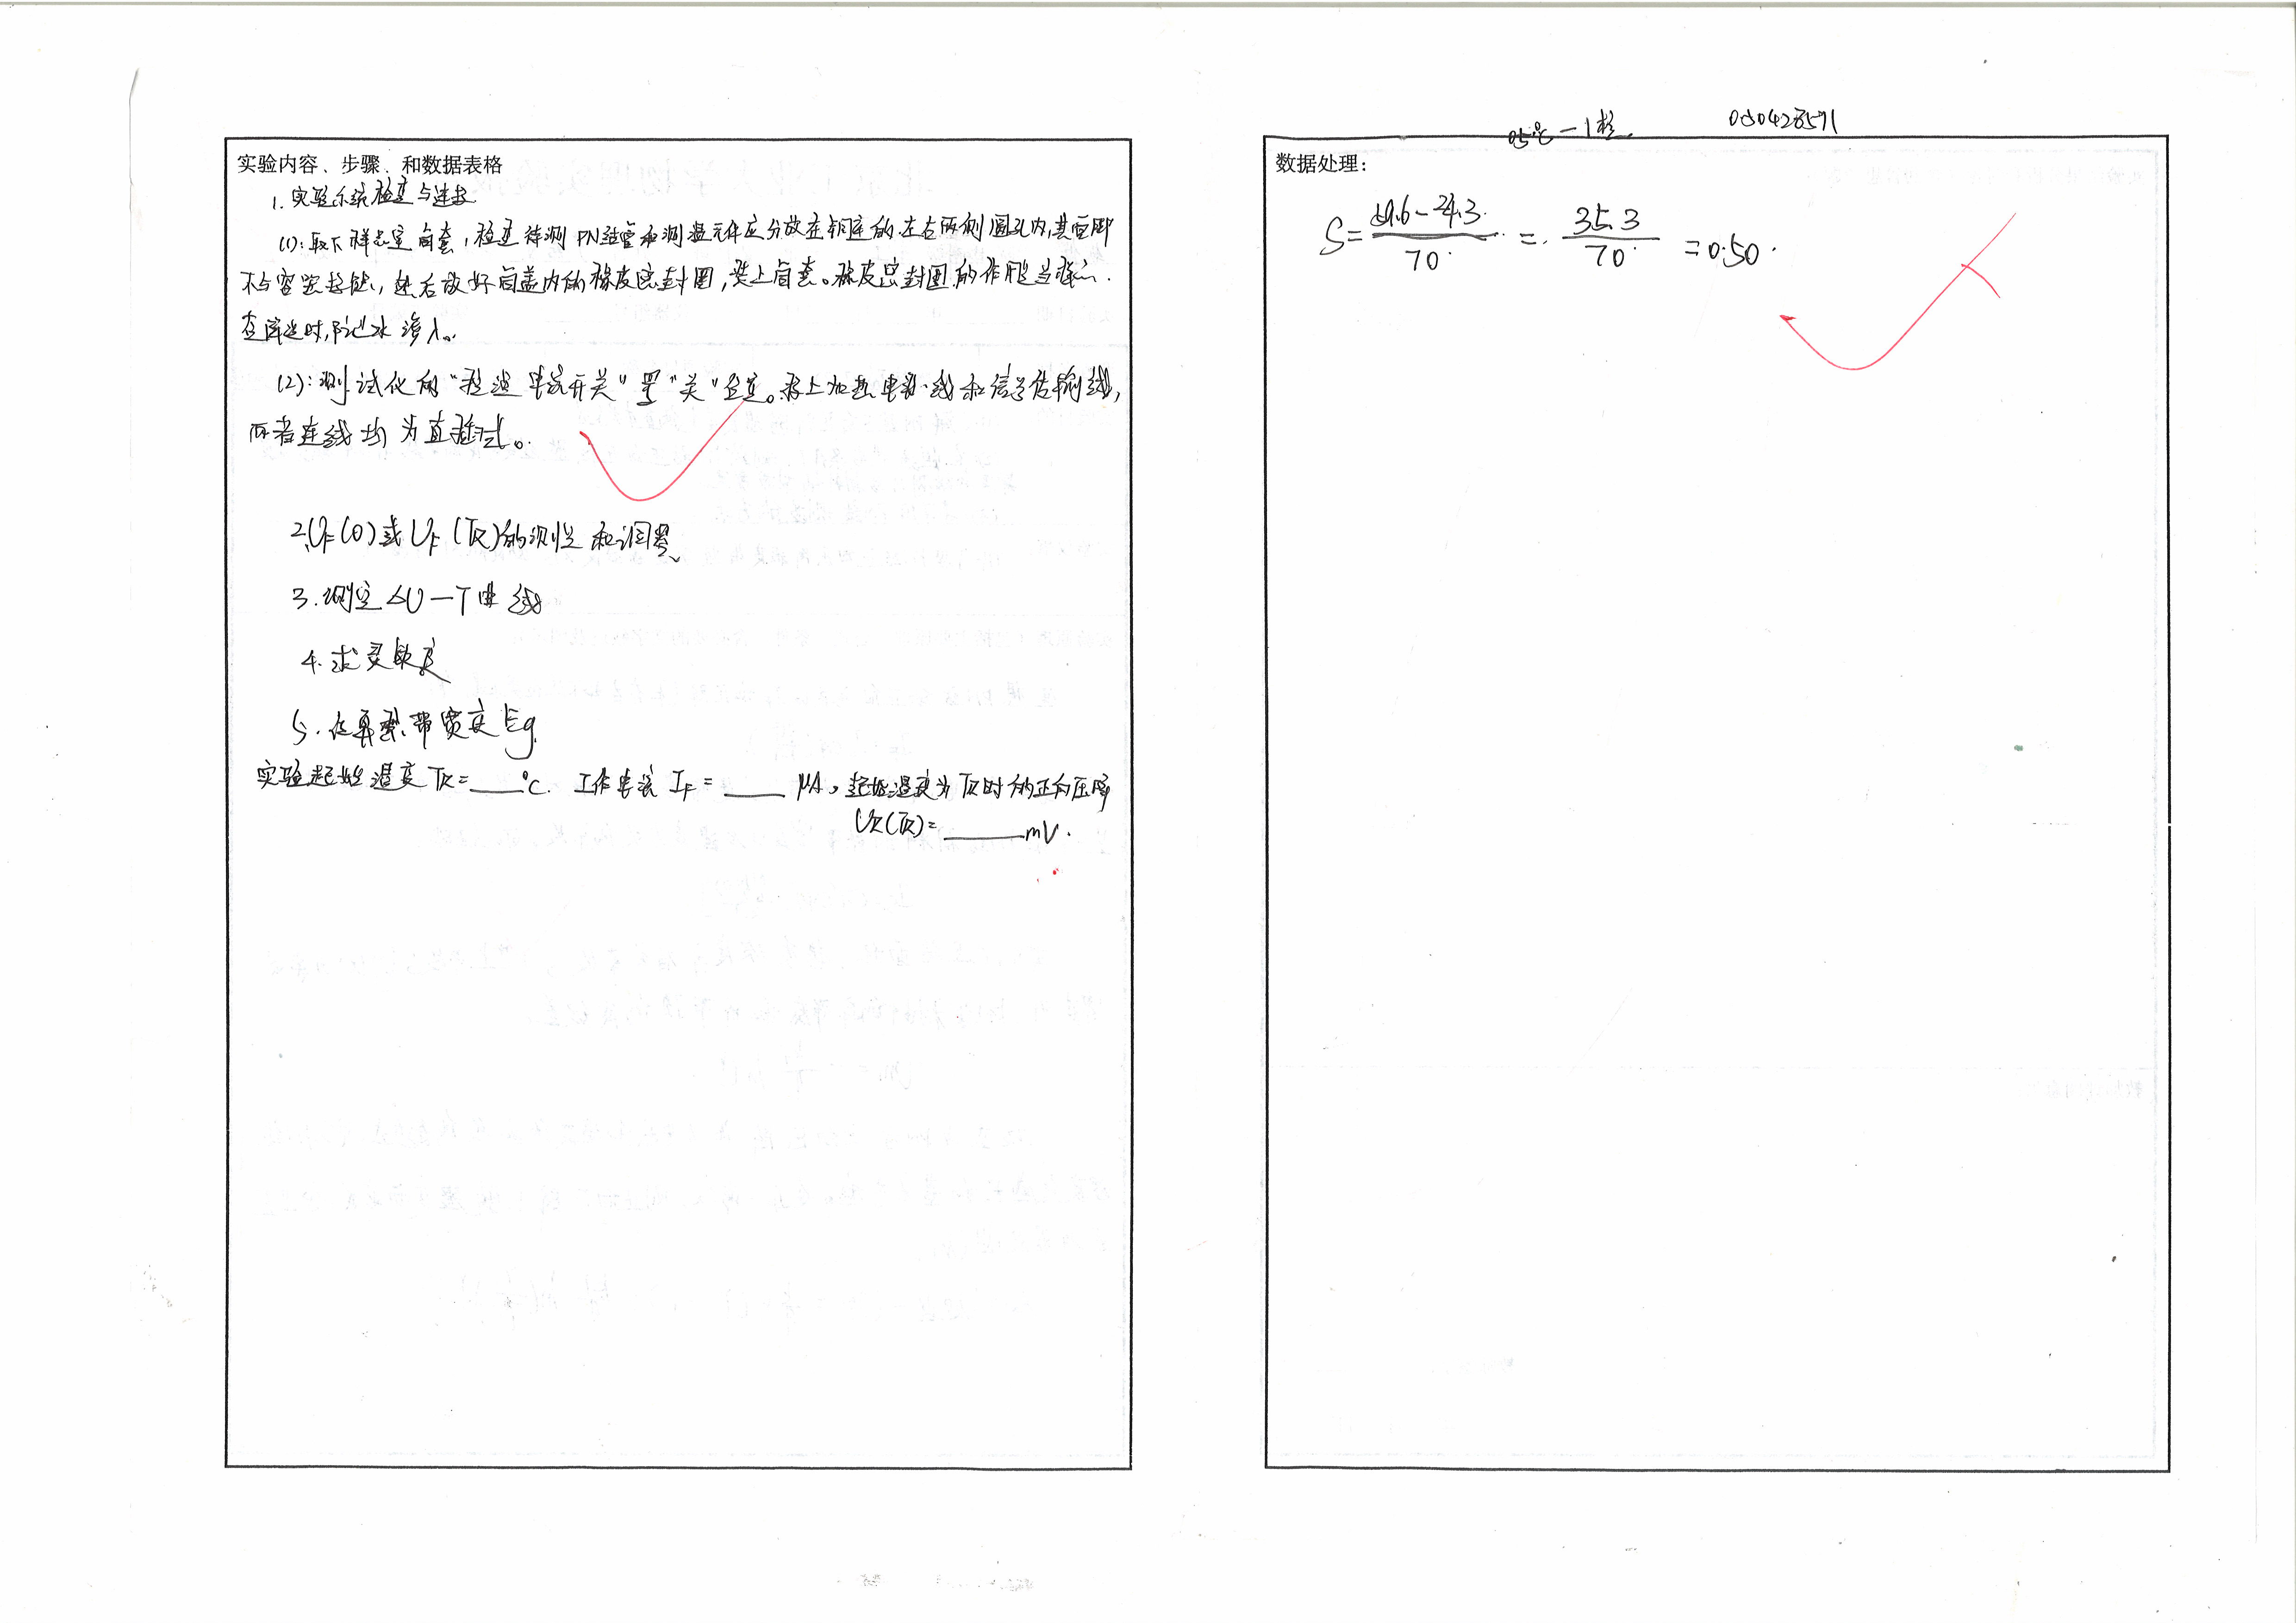 实验内容、步骤、和数据表格
1. 实验系统检查与连接
(1): 取下样品室筒套,检查待测PN结管和测温元件应分放在铜座的左右两侧圆孔内,其管脚
不与容器接触,然后放好筒盖内的橡皮密封圈,装上筒套。橡皮密封圈的作用是当浸入
时,防止水渗入。
(2): 测试仪的"控温电流开关"置"关"位置。接上加热电源线和信号传输线,
两者连线均为直插式。
2. UF(0)或UF(TR)的测量和调零
3. 测定ΔU—T曲线
4. 求灵敏度
5. 估算禁带宽度Eg
实验起始温度TR=____℃. 工作电流IF=____μA,起始温度为TR时的正向压降
UF(TR)=____mV.
05℃—1格
0.50428571
数据处理:
S= 59.6-24.3 / 70 = 35.3 / 70 =0.50.